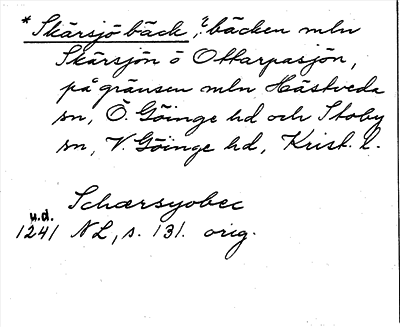 * Skärsjöbäck, ? bäcken mln
Skärsjön o Ottarpasjön,
på gränsen mln Hästveda
sn, Ö. Göinge hd och Stoby
sn, V. Göinge hd, Krist. l.
Schærsyobec
u.d.
1241 NL, s. 131. orig.